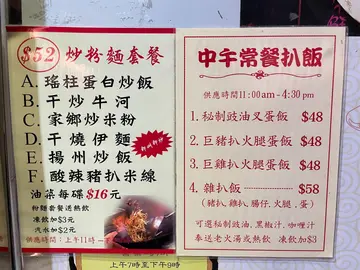 $52 炒粉麵套餐
A. 瑤柱蛋白炒飯
B. 干炒牛河
C. 家鄉炒米粉
D. 干燒伊麵
E. 揚州炒飯
F. 酸辣豬扒米線
即叫即炒
油菜每碟$16元
粉麵套餐送熱飲
凍飲加$3元
汽水加$2元
供應時間：上午11時
中午常餐扒飯
供應時間11:00am - 4:30 pm
1. 秘制豉油叉蛋飯 $48
2. 巨豬扒火腿蛋飯 $48
3. 巨雞扒火腿蛋飯 $48
4. 雜扒飯 $58
(豬扒，雞扒，腸仔，火腿，蛋)
可選秘制豉油，黑椒汁，咖喱汁
奉送老火湯或熱飲 凍飲加$3
上午7時至下午9時